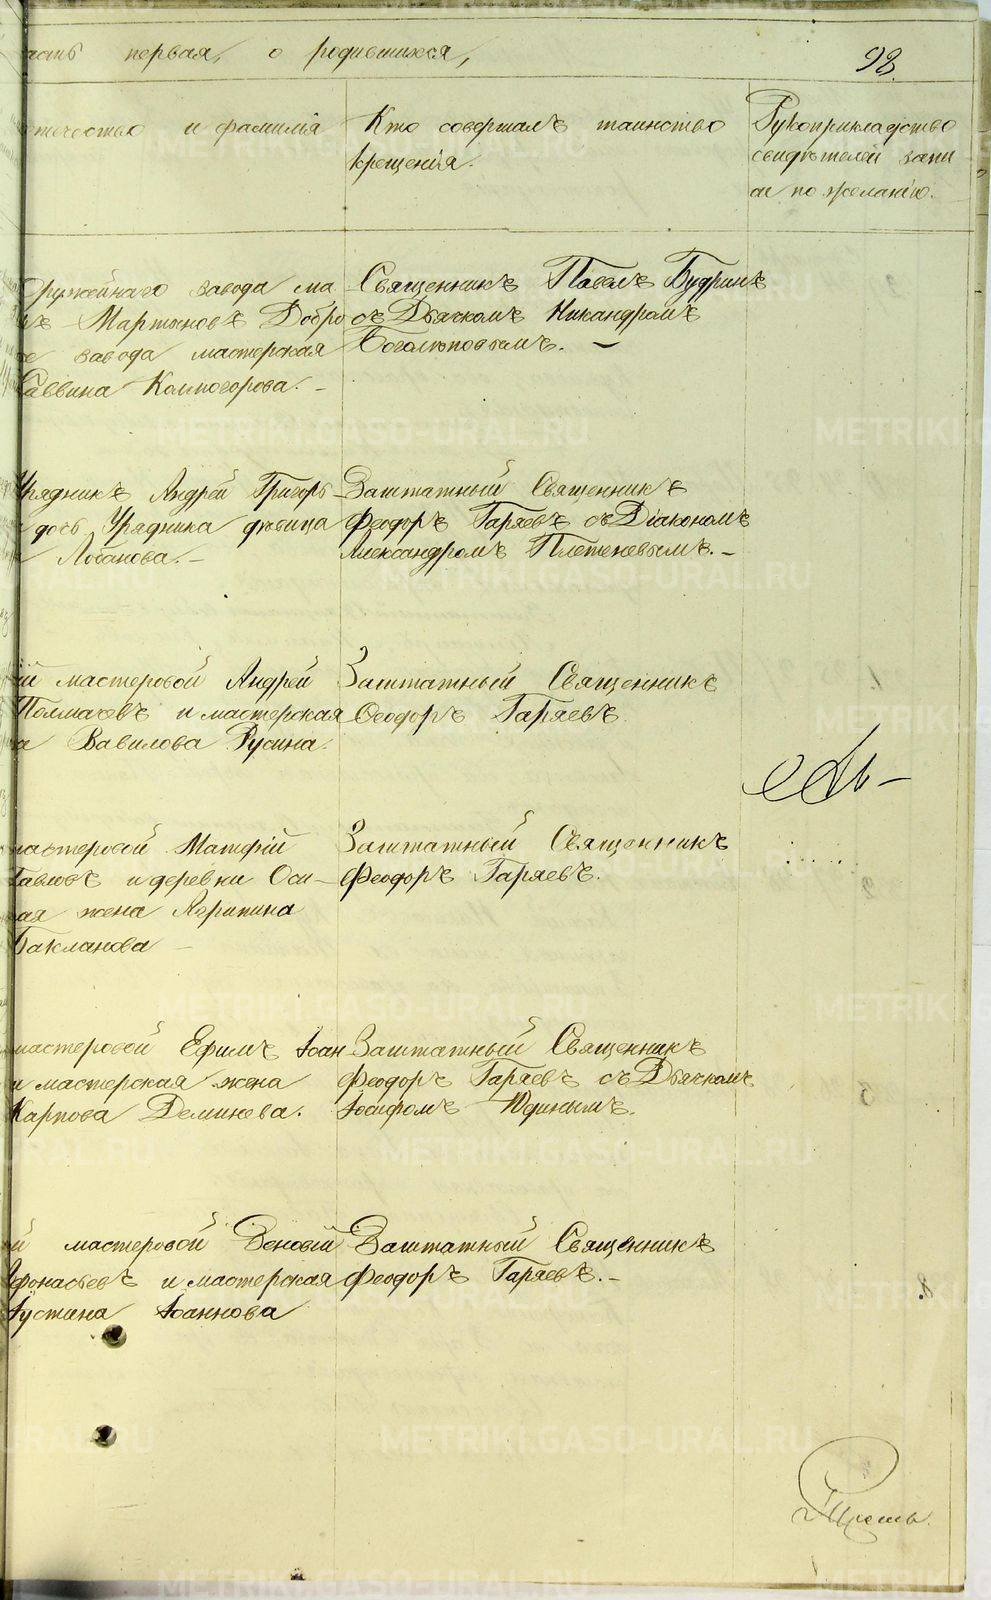 часть первая, о родившихся,
98.
отчество и фамилія
Кто совершалъ таинство
крещенія.
Рукоприкладство
свидѣтелей запи
си по желанію.
Оружейнаго завода ма
нъ Мартыновъ Добро
завода мастерская
Саввина Колмогорова. -
Священникъ Павелъ Будринъ
съ Дьячкомъ Никандромъ
Боголѣповымъ. -
Урядникъ Андрей Григорь-
дочь Урядника дѣвица
Лобанова. -
Заштатный Священникъ
Феодоръ Гаряевъ съ Діакономъ
Александромъ Плетеневымъ. -
ій мастеровой Андрей
и мастерская
а Вавилова Русина.
Заштатный Священникъ
Феодоръ Гаряевъ
мастеровой Матфій
Павловъ и деревни Оси-
ая жена Агрипина
Бакланова -
Заштатный Священникъ
Феодоръ Гаряевъ.
мастеровой Ефимъ Іоан
и мастерская жена
Карпова Деминова.
Заштатный Священникъ
Феодоръ Гаряевъ съ Дьячкомъ
Іосифомъ Юдинымъ.
ій мастеровой Зеновій
Афонасьевъ и мастерская
Іустина Іоаннова
Заштатный Священникъ
Феодоръ Гаряевъ. -
METRIKI.GASO-URAL.RU